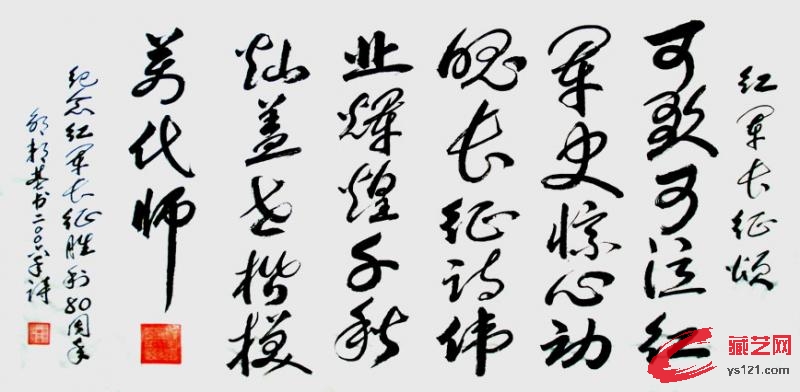 红军长征颂
可歌可泣红
军史惊心动
魄长征诗伟
业辉煌千秋
灿盖世楷模
万代师
纪念红军长征胜利80周年
书二〇〇六年诗
藏艺网
ys121.com